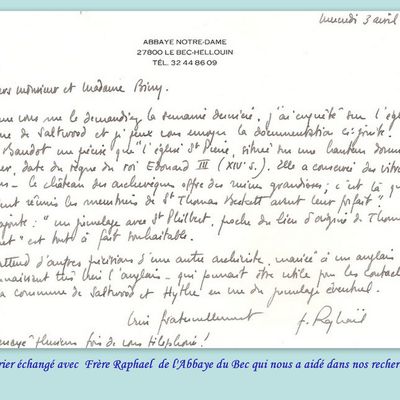 mercredi 3 avril
ABBAYE NOTRE-DAME
27800 LE BEC-HELLOUIN
TÉL. 32 44 86 09
monsieur et Madame
me vous me le demandiez la semaine dernière, j'ai enquêté sur l'ég
de Saltwood et je peux vous envoyer la documentation ci-jointe.
Baudot me précise que "l'église St Pierre, située sur une hauteur
, date du règne du roi Edouard III (XIVe s.). Elle a conservé des vitra
- le château des archevêques offre des ruines grandioses ; c'est là qu
réunis les meurtriers de St Thomas Beckett avant leur forfait".
ajoute : "un jumelage avec St Philbert, proche du lieu d'origine de Thoma
" est tout à fait souhaitable.
attend d'autres précisions d'une autre archiviste, mariée à un anglais
connaissant très bien l'anglais - qui pourrait être utile pour les contacts
a commune de Saltwood et Hythe en vue du jumelage éventuel.
Bien fraternellement
f. Raphaël
essayé plusieurs fois de vous téléphoner !
rier échangé avec Frère Raphael de l'Abbaye du Bec qui nous a aidé dans nos recher